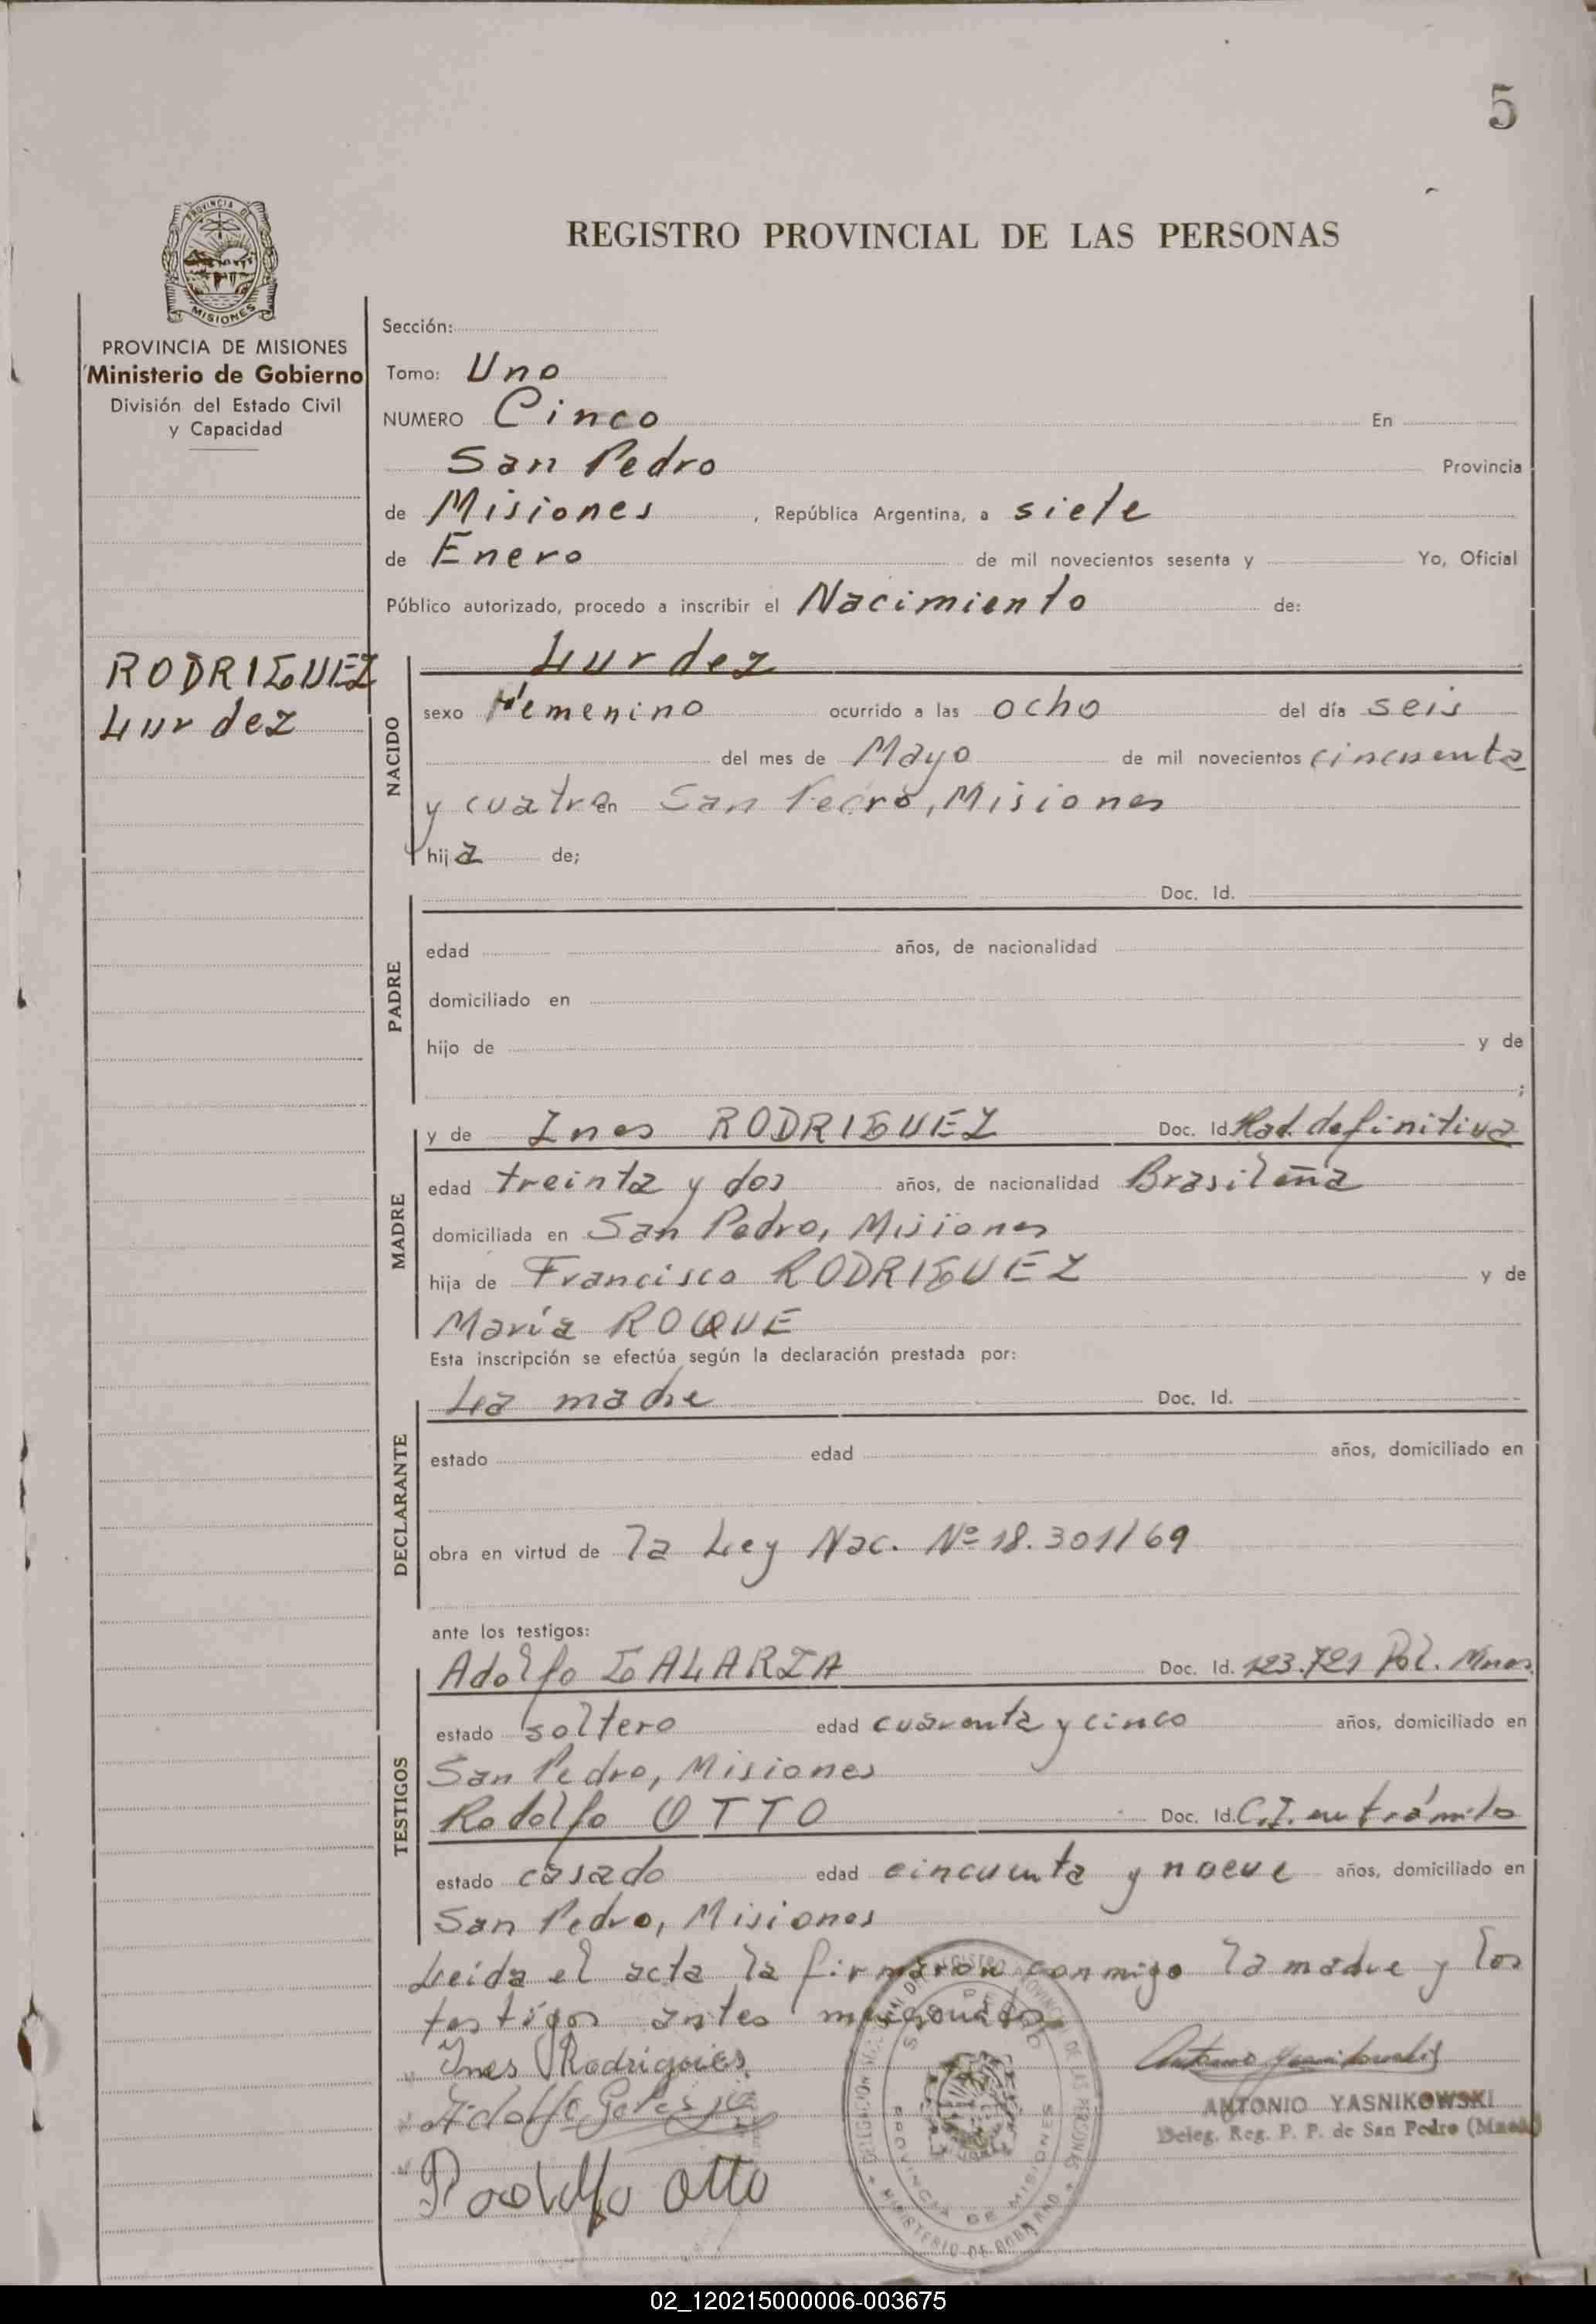 5
PROVINCIA DE
MISIONES
REGISTRO PROVINCIAL DE LAS PERSONAS
PROVINCIA DE MISIONES
Ministerio de Gobierno
División del Estado Civil
y Capacidad
RODRIGUEZ
Lurdez
Sección:
Tomo: Uno
NUMERO Cinco En
San Pedro Provincia
de Misiones , República Argentina, a siete
de Enero de mil novecientos sesenta y Yo, Oficial
Público autorizado, procedo a inscribir el Nacimiento de:
NACIDO
Lurdez
sexo Femenino ocurrido a las ocho del día seis
del mes de Mayo de mil novecientos cincuenta
y cuatro en San Pedro, Misiones
hija de;
PADRE
Doc. Id.
edad años, de nacionalidad
domiciliado en
hijo de y de
;
MADRE
y de Ines RODRIGUEZ Doc. Id. Rad. definitiva
edad treinta y dos años, de nacionalidad Brasileña
domiciliada en San Pedro, Misiones
hija de Francisco RODRIGUEZ y de
María ROQUE
Esta inscripción se efectúa según la declaración prestada por:
DECLARANTE
La madre Doc. Id.
estado edad años, domiciliado en
obra en virtud de la Ley Nac. Nº 18.301/69
ante los testigos:
TESTIGOS
Adolfo GALARZA Doc. Id. 123.721 Pol. Mnes.
estado soltero edad cuarenta y cinco años, domiciliado en
San Pedro, Misiones
Rodolfo OTTO Doc. Id. C.I. en trámite
estado casado edad cincuenta y nueve años, domiciliado en
San Pedro, Misiones
Leida el acta la firmaron conmigo la madre y los
testigos antes mencionados
Ines Rodrigues
Adolfo
Rodolfo Otto
ANTONIO YASNIKOWSKI
Deleg. Reg. P. P. de San Pedro (Mnes.)
SAN PEDRO
PROVINCIA DE MISIONES
MINISTERIO DE GOBIERNO
02_120215000006-003675